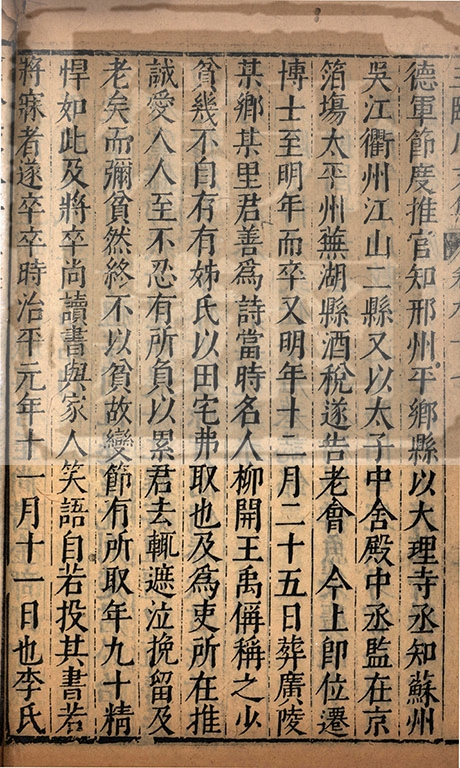 德軍節度推官知邢州平鄉縣以大理寺丞知蘇州
吳江衢州江山二縣又以太子中舍殿中丞監在京
箔場太平州蕪湖縣酒稅遂告老會 今上即位遷
博士至明年而卒又明年十二月二十五日葬廣陵
某鄉某里君善為詩當時名人柳開王禹偁稱之少
貧幾不自存有姊氏以田宅弗取也及為吏所在推
誠愛人人至不忍有所負以累君去輒遮泣挽留及
老矣而彌貧然終不以貧故變節有所取年九十精
悍如此及將卒尚讀書與家人笑語自若投其書若
將寐者遂卒卒時治平元年十一月十一日也李氏